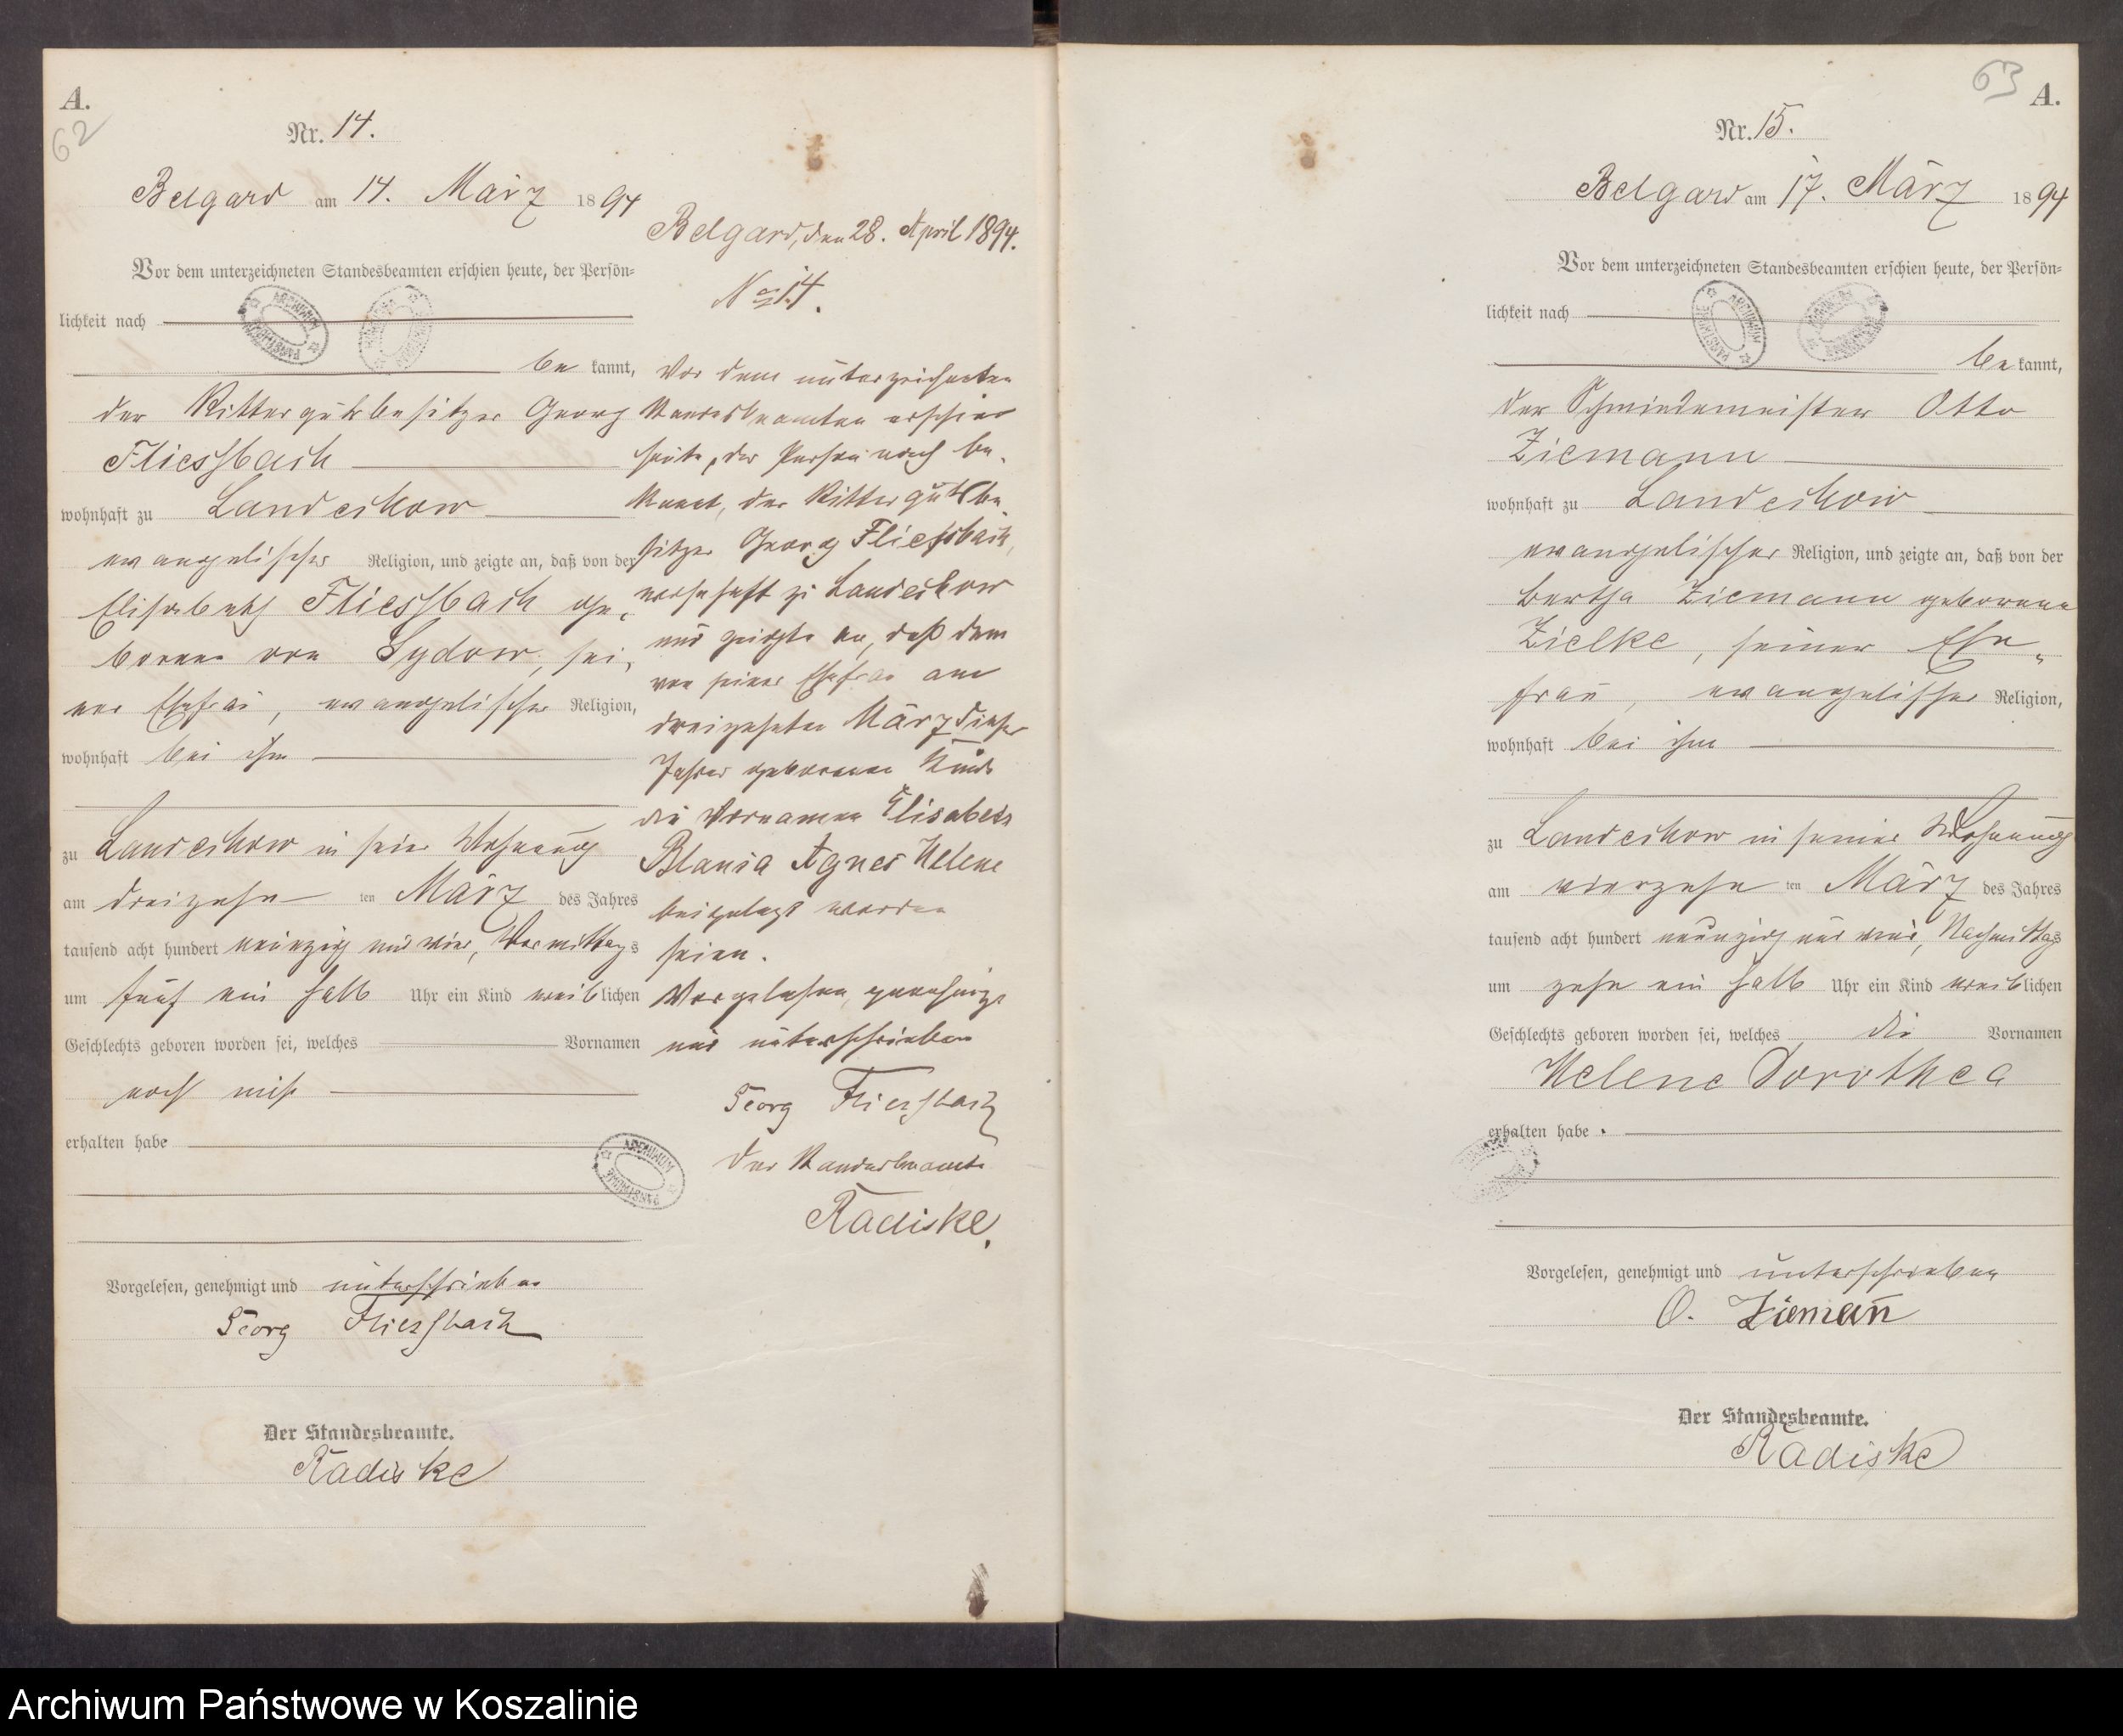 A.
62
Nr. 14.
Belgard am 14. März 1894
Vor dem unterzeichneten Standesbeamten erschien heute, der Persön=
lichkeit nach
be kannt,
der Rittergutsbesitzer Georg
Fliessbach
wohnhaft zu Landechow
evangelischer Religion, und zeigte an, daß von der
Elisabeth Fliessbach ge-
borene von Sydow, sei-
ner Ehefrau, evangelischer Religion,
wohnhaft bei ihm
zu Landechow in seiner Wohnung
am dreizehn ten März des Jahres
tausend acht hundert neunzig und vier, Vormittags
um fünf ein halb Uhr ein Kind weiblichen
Geschlechts geboren worden sei, welches Vornamen
noch nicht
erhalten habe
Vorgelesen, genehmigt und unterschrieben
Georg Fliessbach
Der Standesbeamte.
Radiske
Belgard, den 28. April 1894.
No 14.
Vor dem unterzeichneten
Standesbeamten erschien
heute, der Person nach be-
kannt, der Rittergutsbe-
sitzer Georg Fliessbach,
wohnhaft zu Landechow
und zeigte an, daß dem
von seiner Ehefrau am
dreizehnten März dieses
Jahres geborenen Kinde
die Vornamen Elisabeth
Blanka Agnes Helene
beigelegt worden
seien.
Vorgelesen, genehmigt
und unterschrieben
Georg Fliessbach
Der Standesbeamte
Radiske.
63
A.
Nr. 15.
Belgard am 17. März 1894
Vor dem unterzeichneten Standesbeamten erschien heute, der Persön=
lichkeit nach
be kannt,
der Schmiedemeister Otto
Ziemann
wohnhaft zu Landechow
evangelischer Religion, und zeigte an, daß von der
Bertha Ziemann geborene
Zielke, seiner Ehe-
frau, evangelischer Religion,
wohnhaft bei ihm
zu Landechow in seiner Wohnung
am vierzehn ten März des Jahres
tausend acht hundert neunzig und vier, Nachmittags
um zehn ein halb Uhr ein Kind weiblichen
Geschlechts geboren worden sei, welches die Vornamen
Helene Dorothea
erhalten habe.
Vorgelesen, genehmigt und unterschrieben
O. Ziemann
Der Standesbeamte.
Radiske
Archiwum Państwowe w Koszalinie